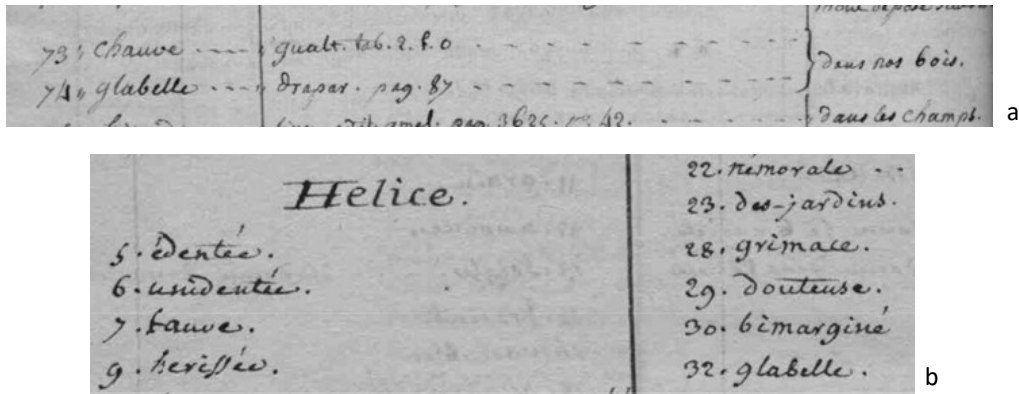 73. Chauve gualt. tab. 2. f. o dans nos bois.
74. glabelle drapar. pag. 87
pag. 3625. n°. 42. dans les champs.
a
Helice.
5. édentée.
6. unidentée.
7. fauve.
9. herissée.
22. némorale
23. des-jardins.
28. grimace.
29. douteuse.
30. bimarginé
32. glabelle.
b